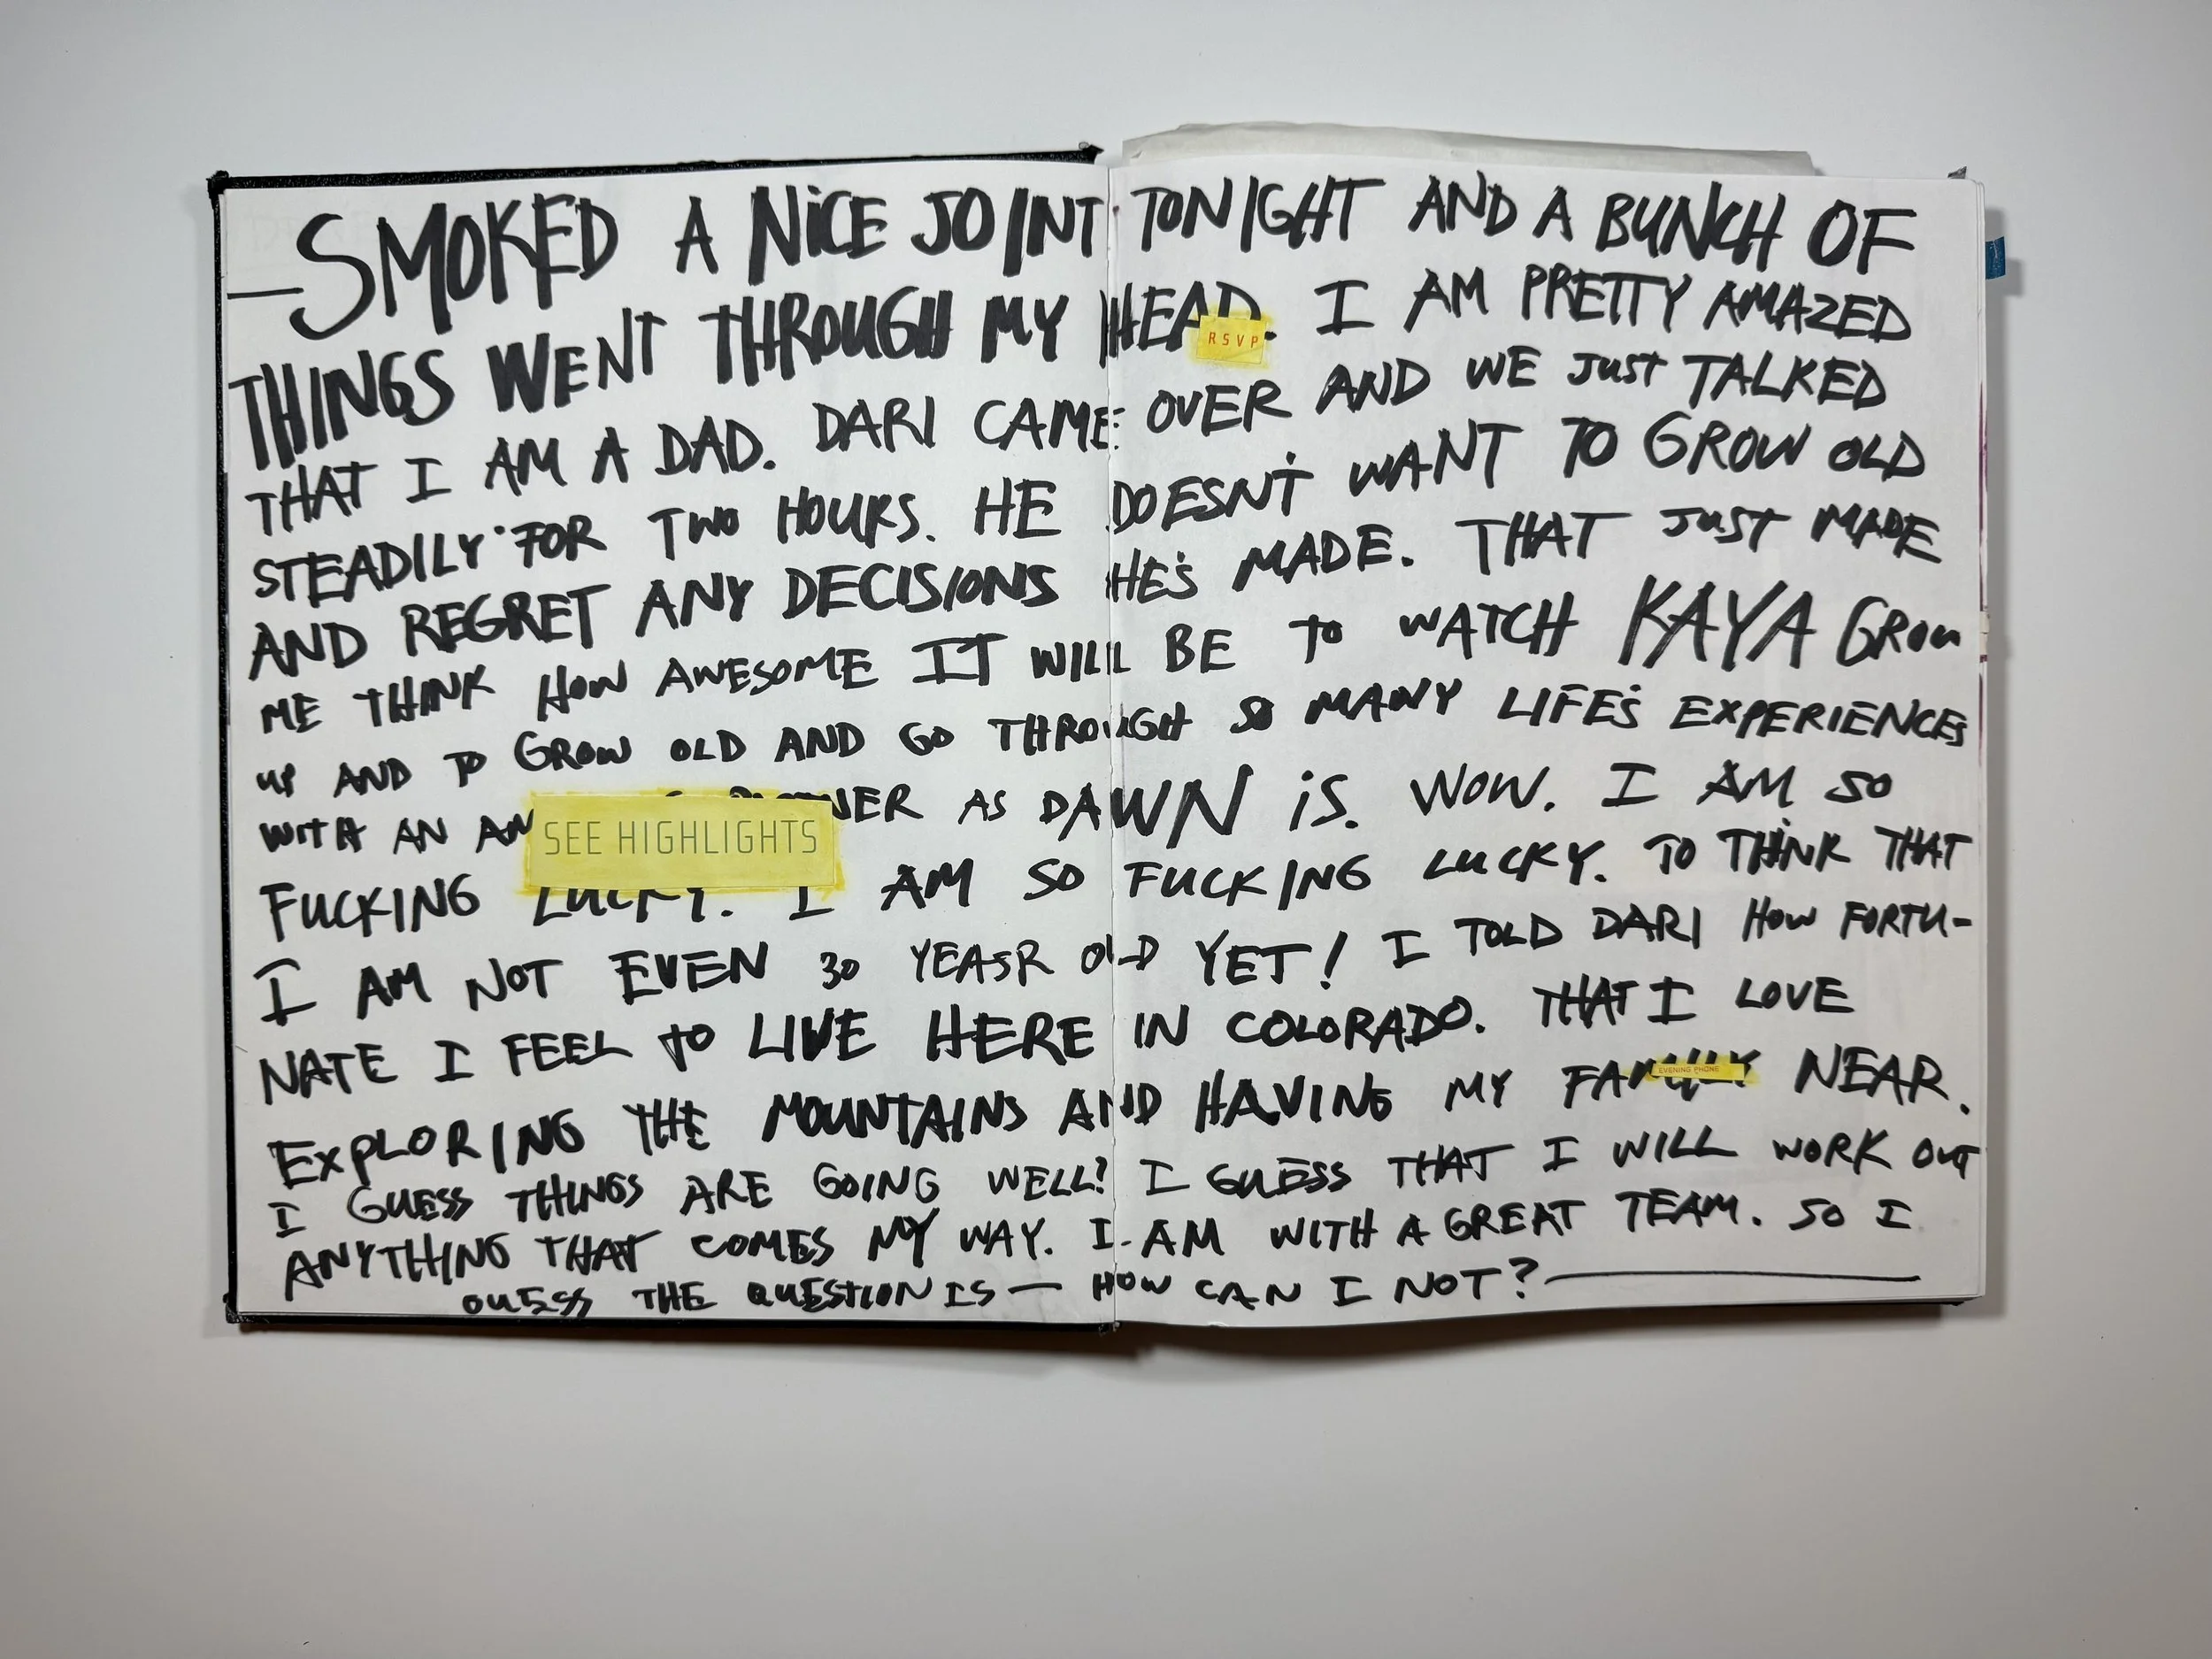 —SMOKED A NICE JOINT TONIGHT AND A BUNCH OF
THINGS WENT THROUGH MY HEAD. I AM PRETTY AMAZED
RSVP
THAT I AM A DAD. DARI CAME OVER AND WE JUST TALKED
STEADILY FOR TWO HOURS. HE DOESN'T WANT TO GROW OLD
AND REGRET ANY DECISIONS HE'S MADE. THAT JUST MADE
ME THINK HOW AWESOME IT WILL BE TO WATCH KAYA GROW
UP AND TO GROW OLD AND GO THROUGH SO MANY LIFE'S EXPERIENCES
WITH AN AS DAWN IS. WOW. I AM SO
SEE HIGHLIGHTS
FUCKING LUCKY. I AM SO FUCKING LUCKY. TO THINK THAT
I AM NOT EVEN 30 YEASR OLD YET! I TOLD DARI HOW FORTU-
NATE I FEEL TO LIVE HERE IN COLORADO. THAT I LOVE
EXPLORING THE MOUNTAINS AND HAVING MY FAMILY NEAR.
EVENING PHONE
I GUESS THINGS ARE GOING WELL? I GUESS THAT I WILL WORK OUT
ANYTHING THAT COMES MY WAY. I AM WITH A GREAT TEAM. SO I
GUESS THE QUESTION IS — HOW CAN I NOT?—